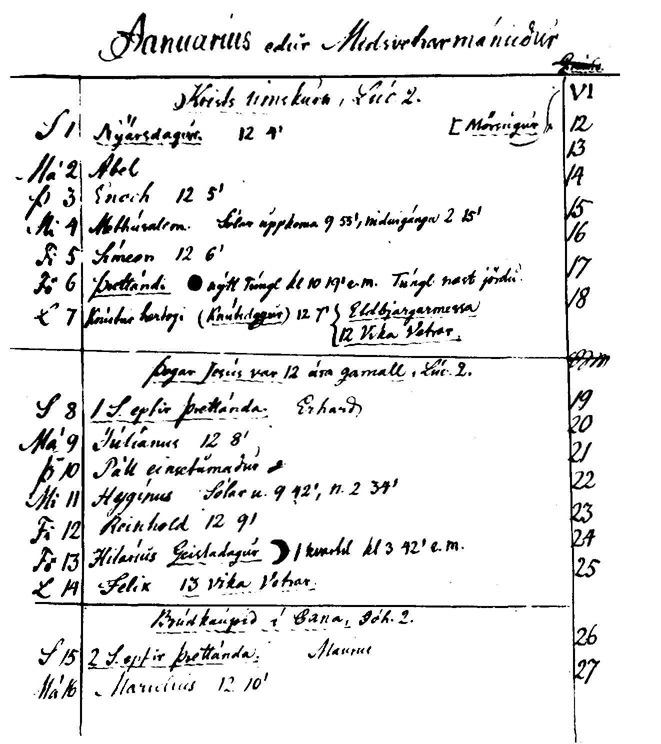 Januarius edur Midsvetrarmánudur
Krists umskurn, Lúc 2. VI
S 1 Nýársdagur. 12 4' [Mörsugur] 12
13
Má 2 Abel 14
Þ 3 Enoch 12 5' 15
Mi 4 Methúsalem. Sólar uppkoma 9 53', nidurgánga 2 15' 16
Fi 5 Símeon 12 6' 17
Fö 6 Þrettándi nýtt Túngl kl 10 19' e.m. Túngl næst jördu 18
L 7 Knútur hertogi (Knútsdagur) 12 7' { Eldbjargarmessa
12 Vika Vetrar.
Þegar Jesús var 12 ára gamall, Lúc. 2.
S 8 1 S. eptir Þrettánda. Erhard 19
Má 9 Júlíanus 12 8' 20
Þ 10 Páll einsetumadur 21
Mi 11 Hygínus Sólar u. 9 42', n. 2 34' 22
Fi 12 Reinhold 12 9' 23
Fö 13 Hilaríus Geisladagur 1 kvartel kl 3 42' e.m. 24
L 14 Felix 13 Vika Vetrar. 25
Brúdkaupid í Cana, Jóh. 2.
S 15 2 S. eptir Þrettánda. Maurus 26
Má 16 Marcellus 12 10' 27